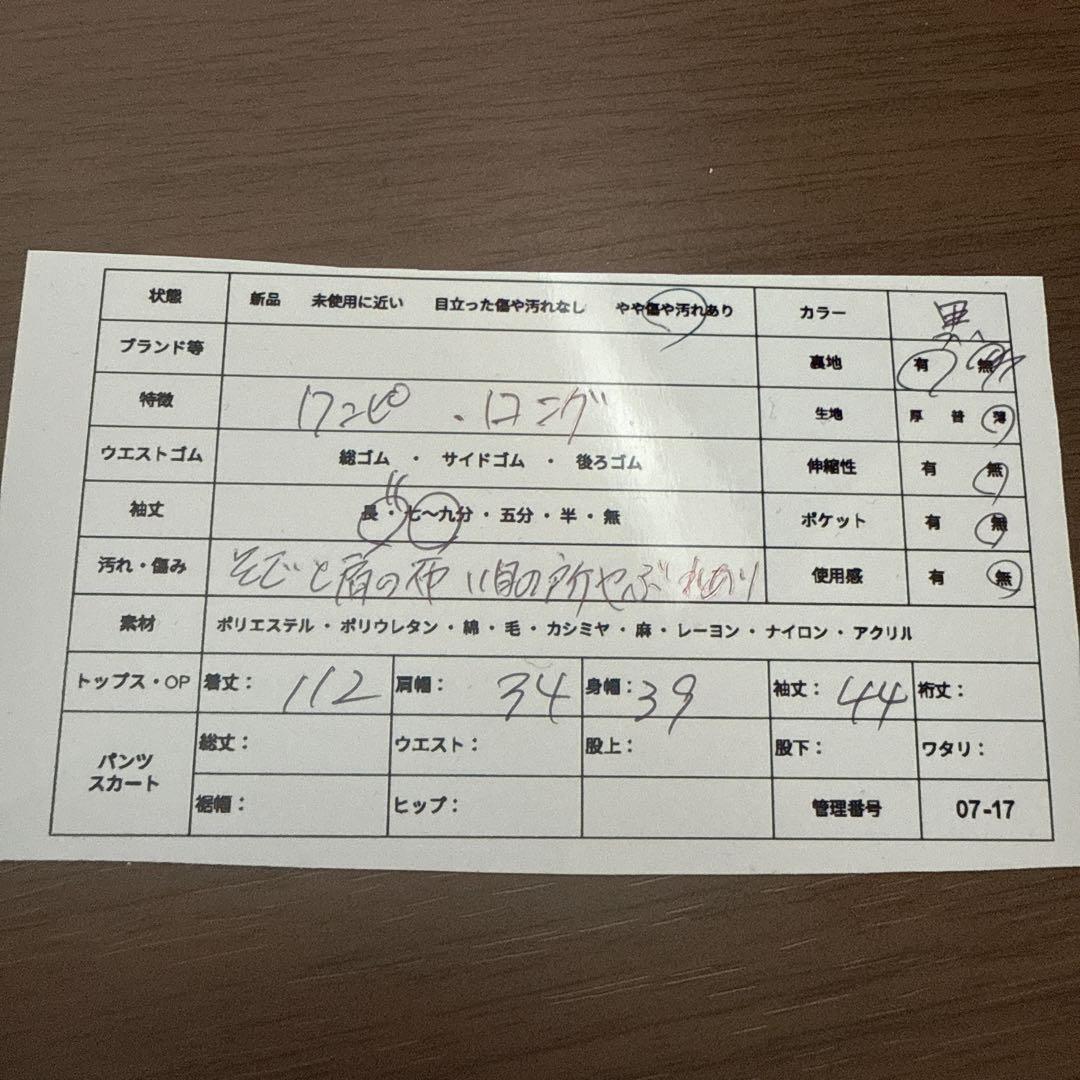 状態 新品 未使用に近い 目立った傷や汚れなし やや傷や汚れあり カラー 黒
ブランド等 裏地 有 無
特徴 ワンピ・ロング 生地 厚 普 薄
ウエストゴム 総ゴム ・ サイドゴム ・ 後ろゴム 伸縮性 有 無
袖丈 長・七〜九分・五分・半・無 ポケット 有 無
汚れ・傷み そでと肩の布 い目の所やぶれあり 使用感 有 無
素材 ポリエステル・ポリウレタン・綿・毛・カシミヤ・麻・レーヨン・ナイロン・アクリル
トップス・OP 着丈: 112 肩幅: 34 身幅: 39 袖丈: 44 裄丈:
パンツ
スカート
総丈: ウエスト: 股上: 股下: ワタリ:
裾幅: ヒップ: 管理番号 07-17